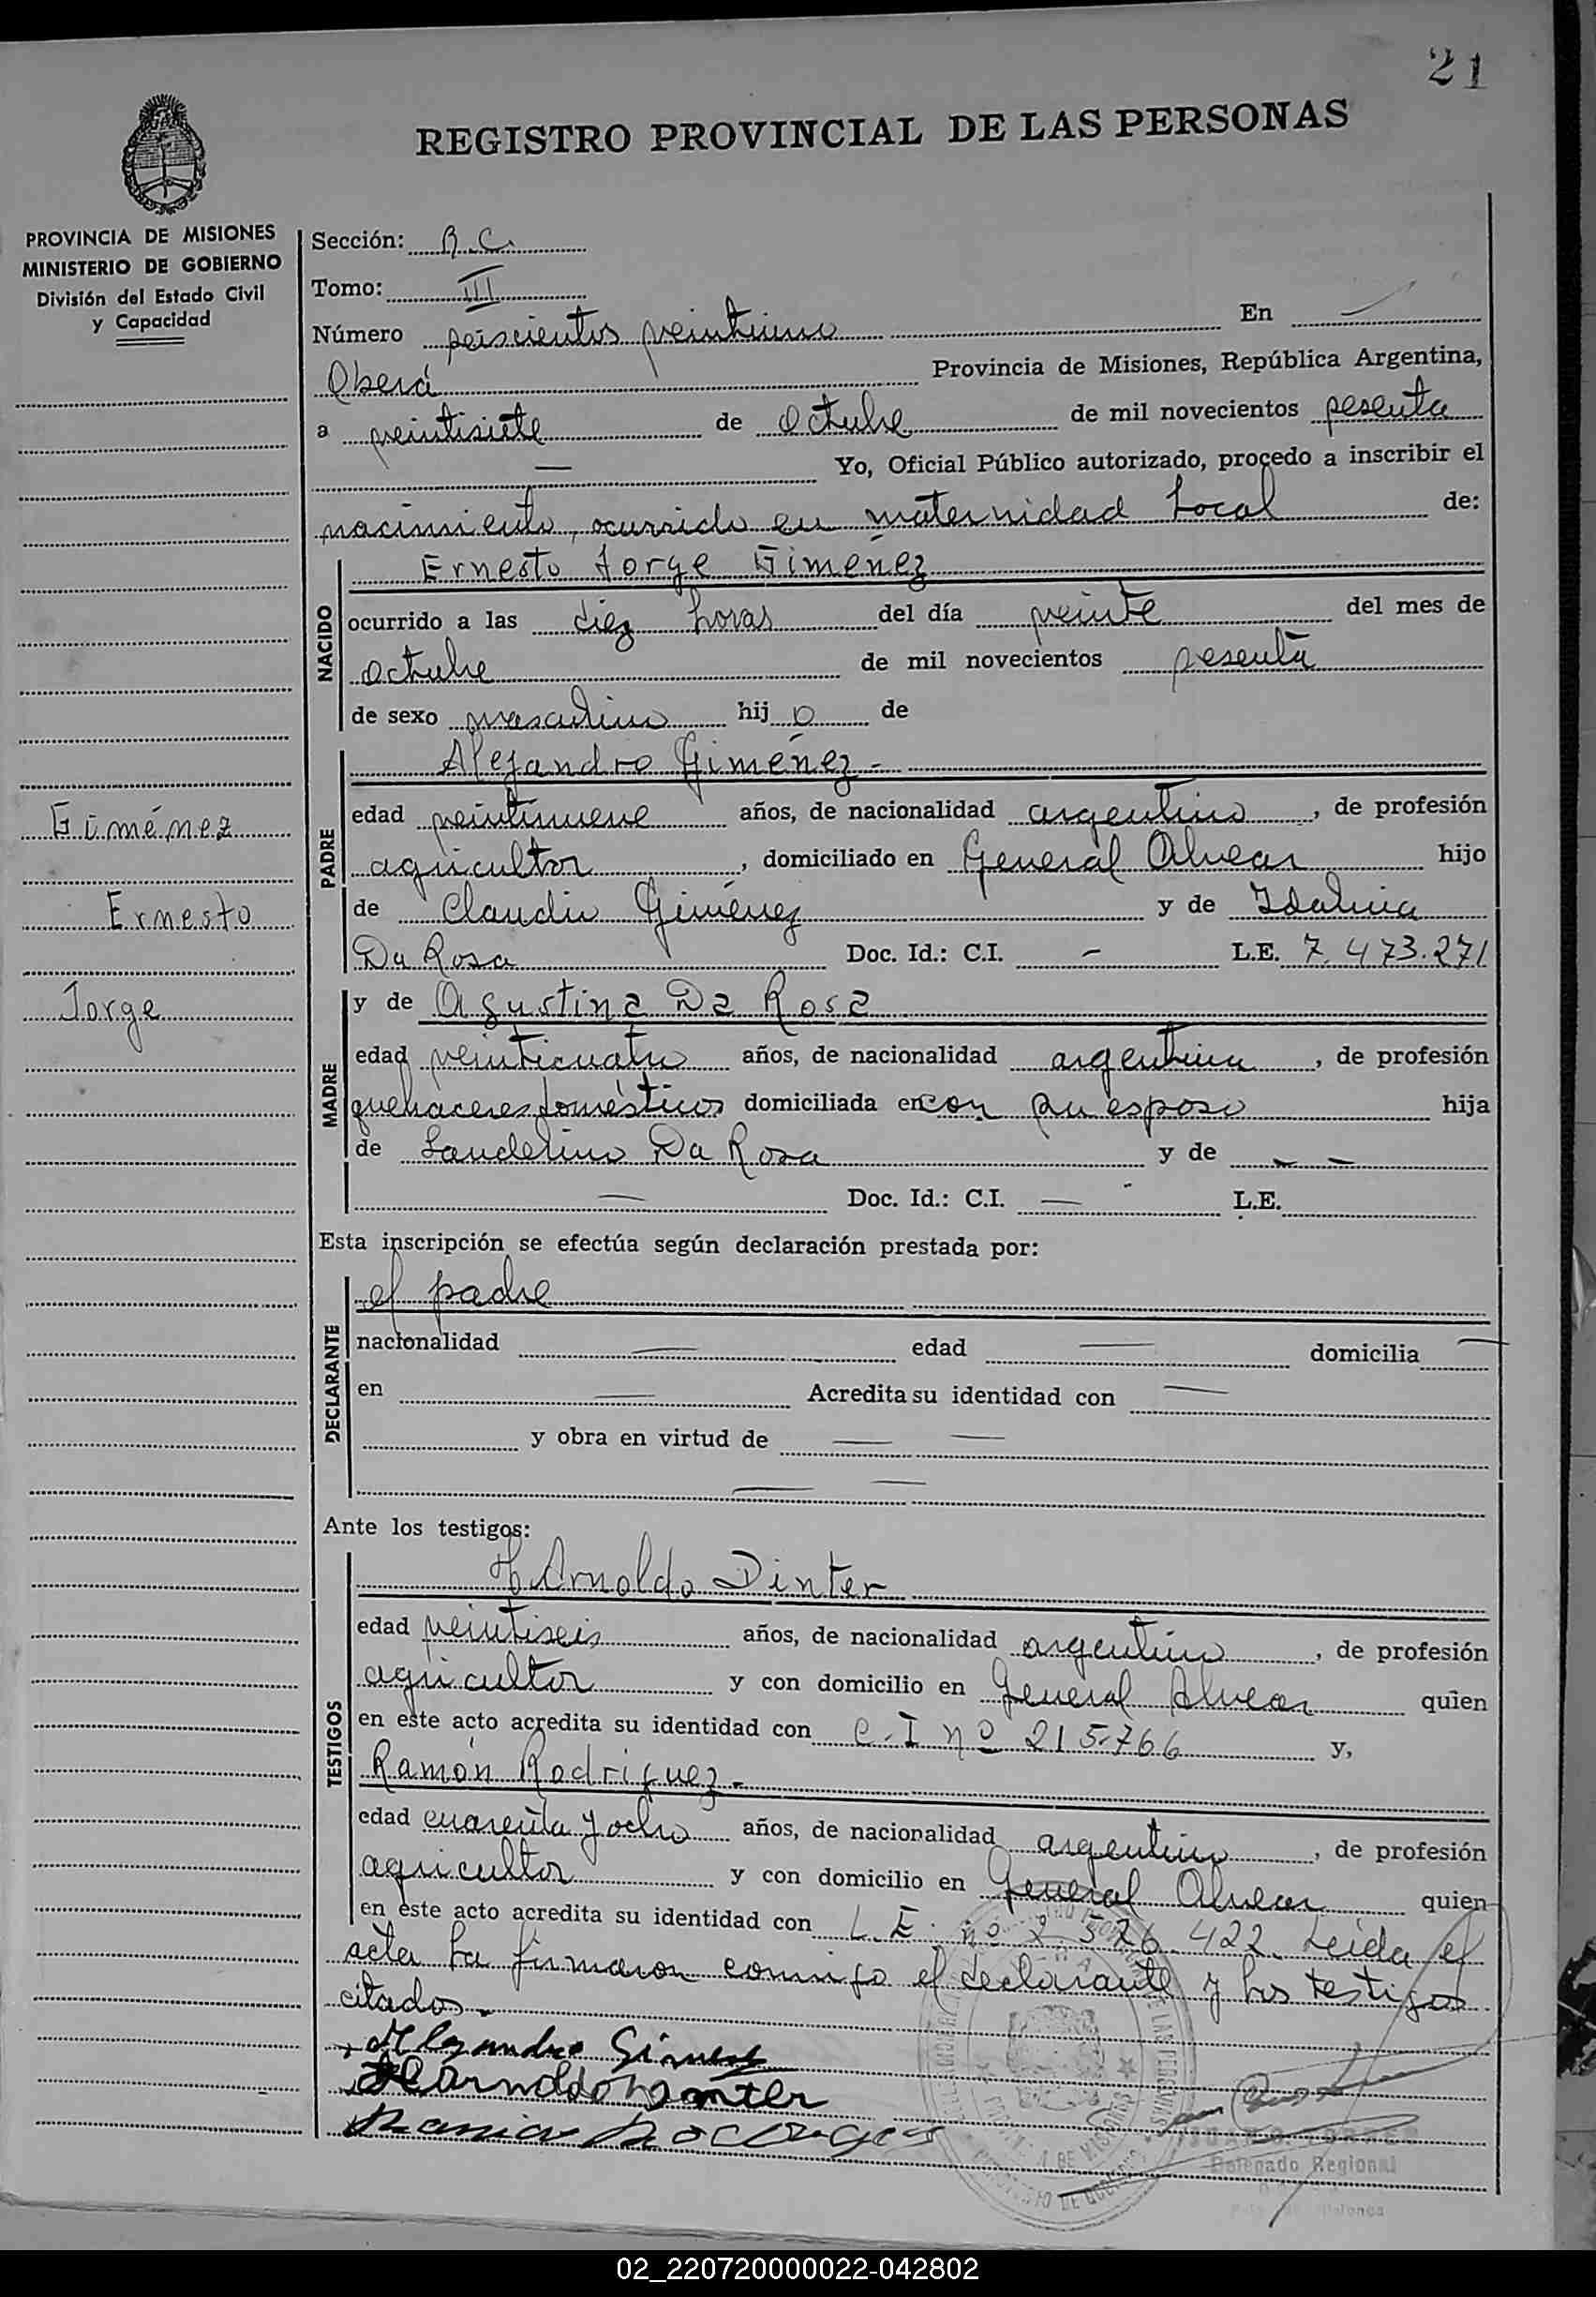 21
REGISTRO PROVINCIAL DE LAS PERSONAS
PROVINCIA DE MISIONES
MINISTERIO DE GOBIERNO
División del Estado Civil
y Capacidad
Giménez
Ernesto
Jorge
Sección: R.C.
Tomo: III
Número seiscientos veintiuno En
Oberá Provincia de Misiones, República Argentina,
a veintisiete de octubre de mil novecientos sesenta
— Yo, Oficial Público autorizado, procedo a inscribir el
nacimiento, ocurrido en maternidad local de:
NACIDO
Ernesto Jorge Giménez
ocurrido a las diez horas del día veinte del mes de
octubre de mil novecientos sesenta
de sexo masculino hijo de
PADRE
Alejandro Giménez -
edad veintinueve años, de nacionalidad argentino, de profesión
agricultor, domiciliado en General Alvear hijo
de Claudio Giménez y de Idalina
Da Rosa Doc. Id.: C.I. - L.E. 7.473.271
MADRE
y de Agustina Da Rosa
edad veinticuatro años, de nacionalidad argentina, de profesión
quehaceres domésticos domiciliada en con su esposo hija
de Laudelino Da Rosa y de — —
— Doc. Id.: C.I. — L.E.
Esta inscripción se efectúa según declaración prestada por:
DECLARANTE
el padre
nacionalidad — edad — domicilia —
en — Acredita su identidad con —
y obra en virtud de — —
— —
Ante los testigos:
TESTIGOS
H. Arnoldo Dinter
edad veintiseis años, de nacionalidad argentino, de profesión
agricultor y con domicilio en General Alvear quien
en este acto acredita su identidad con C.I nº 215.766 y,
Ramón Rodriguez -
edad cuarenta y ocho años, de nacionalidad argentino, de profesión
agricultor y con domicilio en General Alvear quien
en este acto acredita su identidad con L.E. nº 2.576.422. Leida el
acta la firmaron conmigo el declarante y los testigos
citados.
Alejandro Gimenez
H Arnoldo Dinter
Delegado Regional
02_220720000022-042802